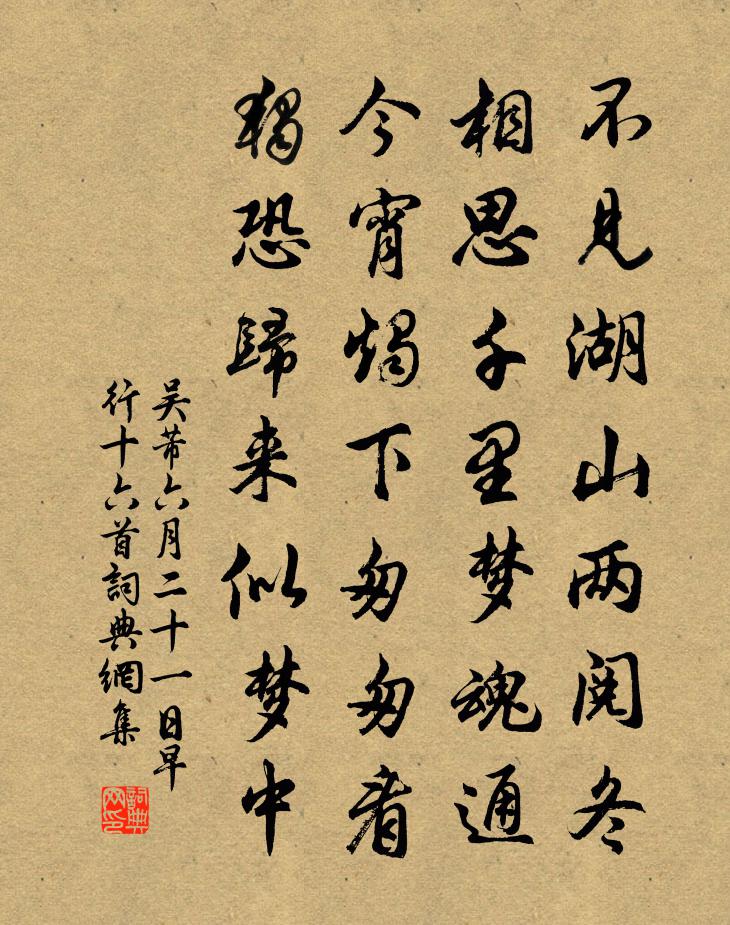 不見湖山两閱冬
相思千里梦魂通
今宵燭下匆匆看
猶恐歸来似梦中
吴芾六月二十一日早
行十六首詞典網集
詞典
网印